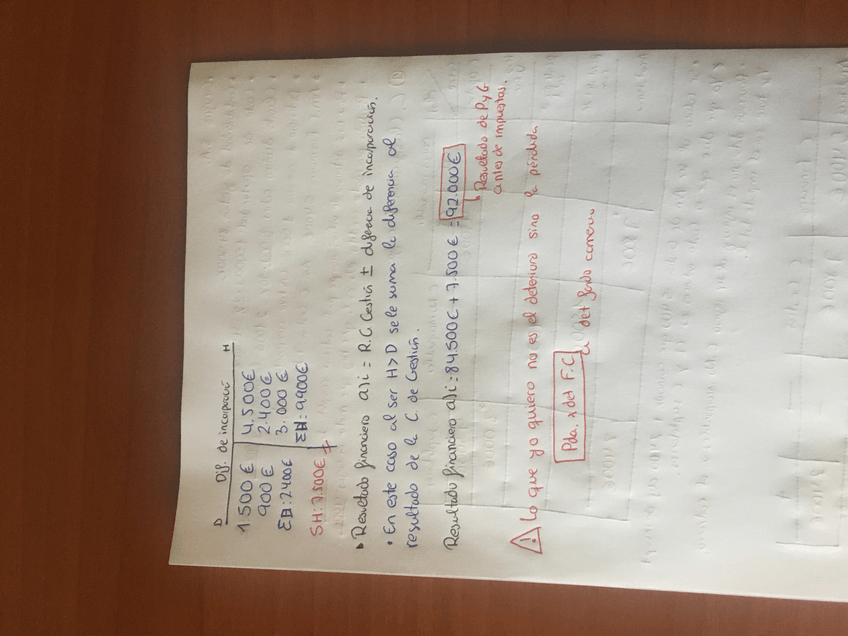 D Dif. de incorporación H
1.500€ 4.500€
900€ 2.400€
3.000€
ΣD: 2400€ ΣH: 9.900€
SH: 7.500€
▸ Resultado financiero a)i = R.C. Gestión ± diferencia de incorporación.
• En este caso al ser H>D se le suma la diferencia al
resultado de la C. de Gestión.
Resultado financiero a)i = 84.500€ + 7.500€ = 92.000€
Resultado de PyG
antes de impuestos.
⚠ Lo que yo quiero no es el deterioro sino la pérdida
Pda. x det F.C
det fondo comercio